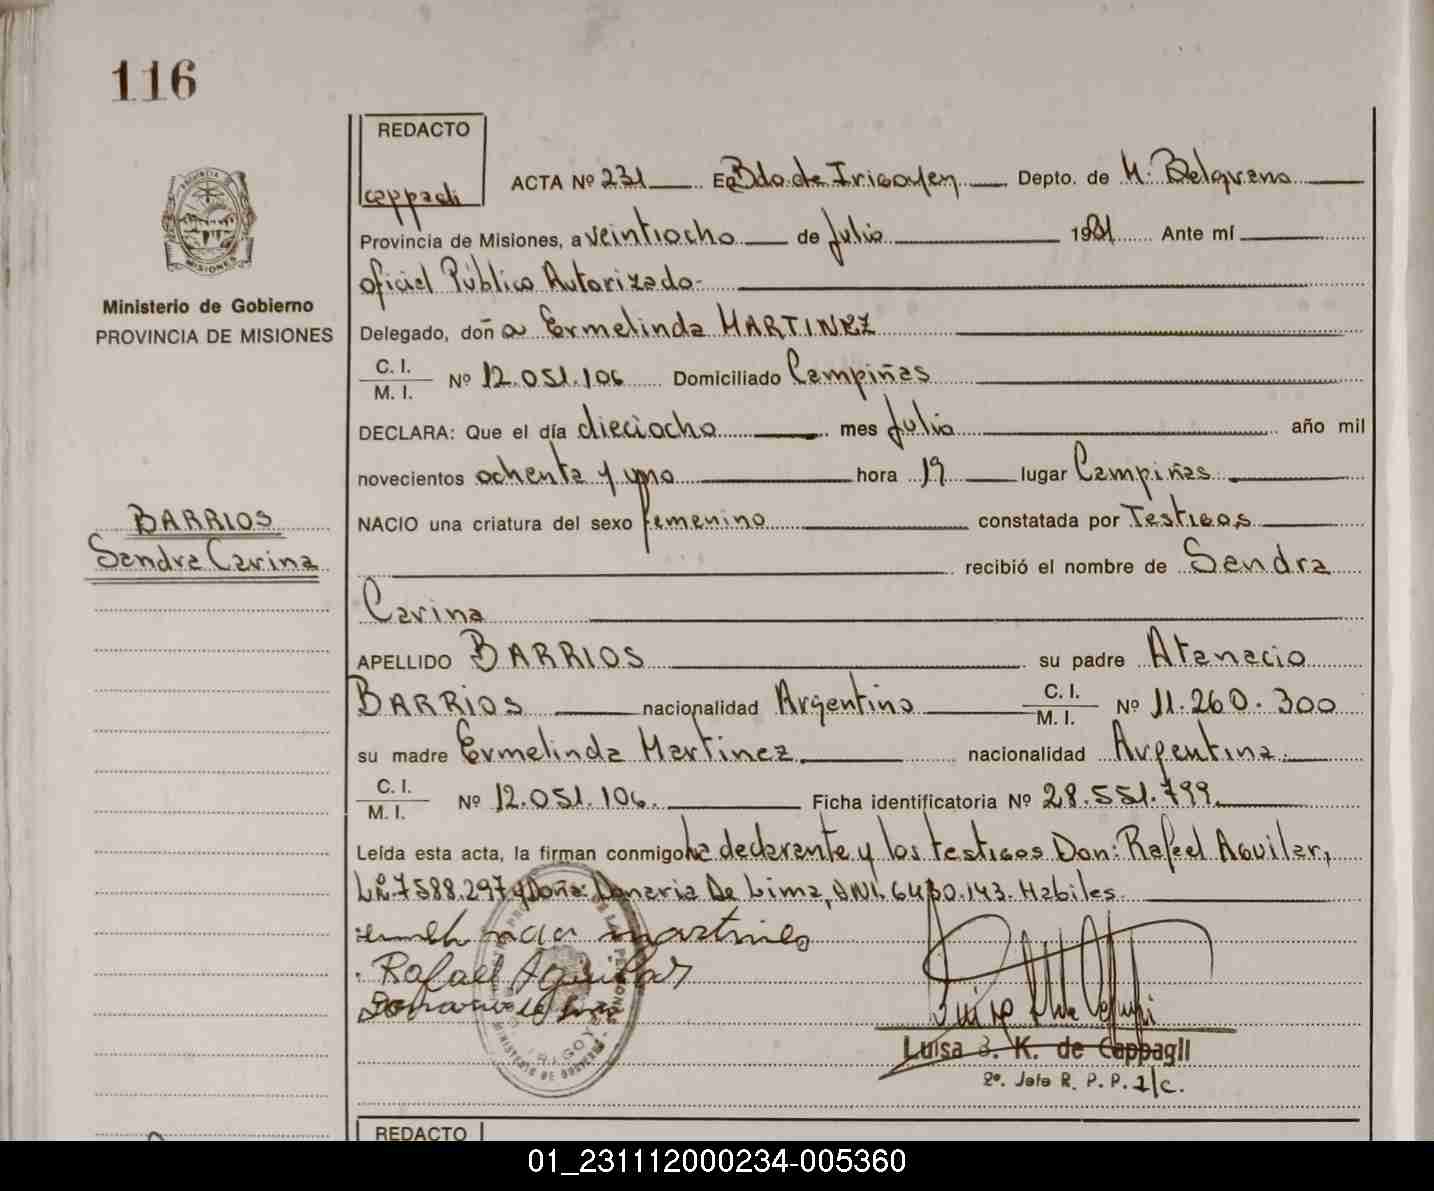 116
REDACTO
cappagli
ACTA Nº 231 En Bdo. de Irigoyen Depto. de M. Belgrano
Provincia de Misiones, a veintiocho de Julio 1981 Ante mí
Oficial Público Autorizado.
Ministerio de Gobierno
PROVINCIA DE MISIONES
Delegado, doña Ermelinda MARTINEZ
C. I.
M. I.
Nº 12.051.106 Domiciliado Campiñas
DECLARA: Que el día dieciocho mes Julio año mil
novecientos ochenta y uno hora 19 lugar Campiñas
BARRIOS
Sandra Carina
NACIO una criatura del sexo femenino constatada por Testigos
recibió el nombre de Sandra
Carina
APELLIDO BARRIOS su padre Atanacio
BARRIOS nacionalidad Argentino C. I. M. I. Nº 11.260.300
su madre Ermelinda Martinez nacionalidad Argentina.
C. I.
M. I.
Nº 12.051.106. Ficha identificatoria Nº 28.551.799
Leída esta acta, la firman conmigo La declarante y los testigos Don: Rafael Aguilar,
L.E. 7588.297 y Doña: Donaria De Lima, DNI. 6430.143. Habiles
martines
Rafael Aguilar
Luisa B. K. de Cappagli
2º. Jefe R. P. P. a/c.
REDACTO
01_231112000234-005360